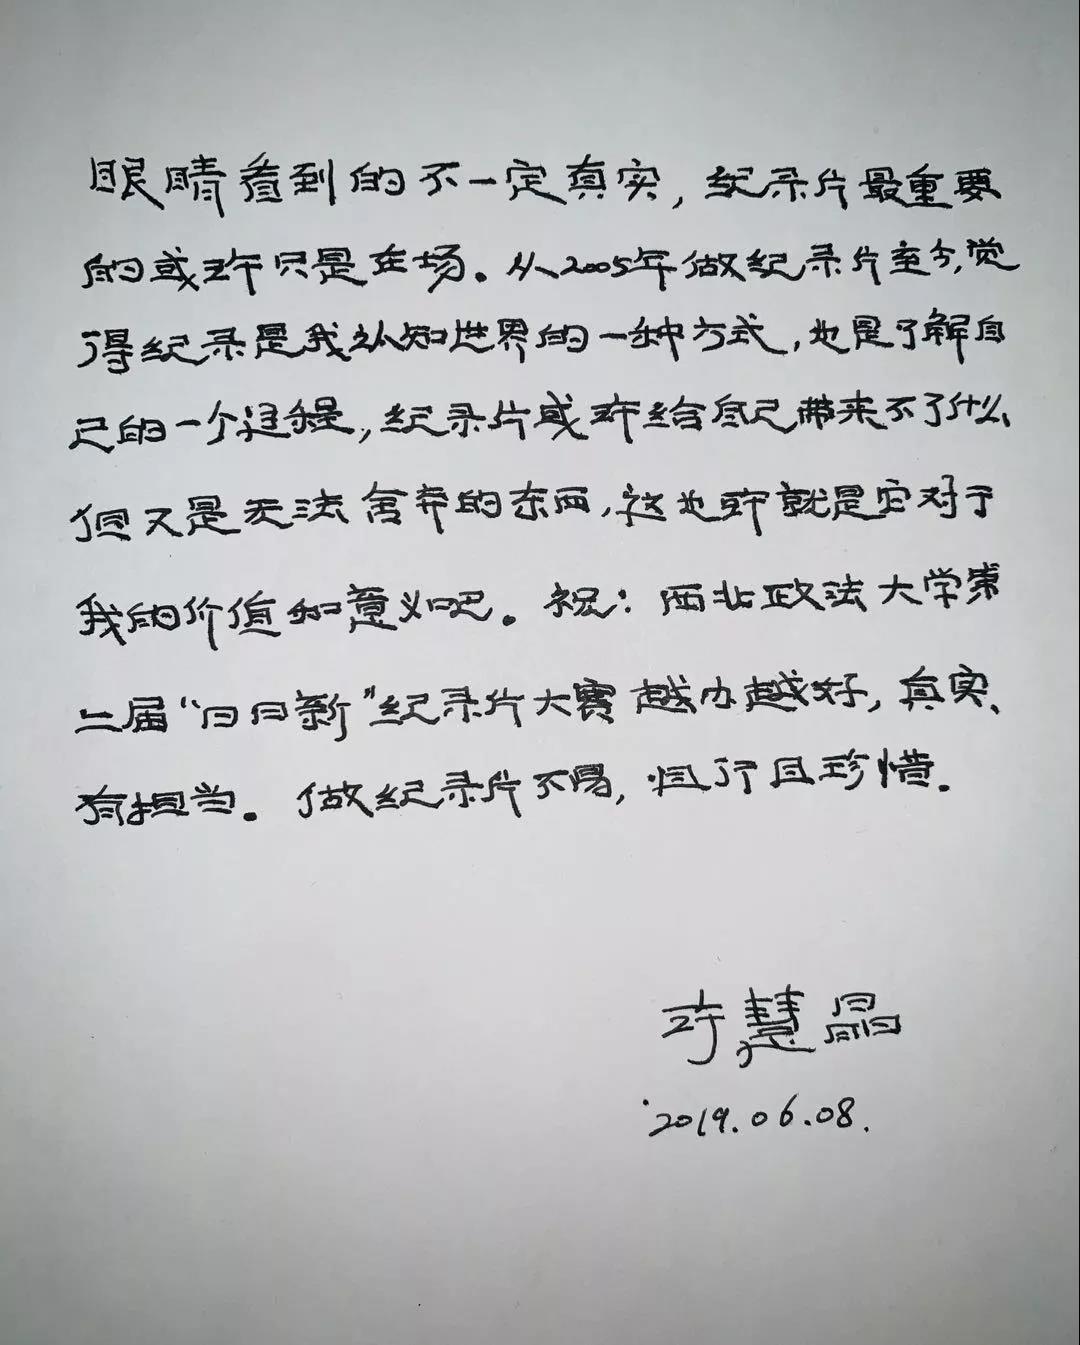 眼睛看到的不一定真实，纪录片最重要
的或许只是在场。从2005年做纪录片至今，觉
得纪录是我认知世界的一种方式，也是了解自
己的一个过程，纪录片或许给自己带来不了什么
但又是无法舍弃的东西，这也许就是它对于
我的价值和意义吧。祝：西北政法大学第
二届“日日新”纪录片大赛越办越好，真实、
有担当。做纪录片不易，但行且珍惜.
许慧晶
2019.06.08.